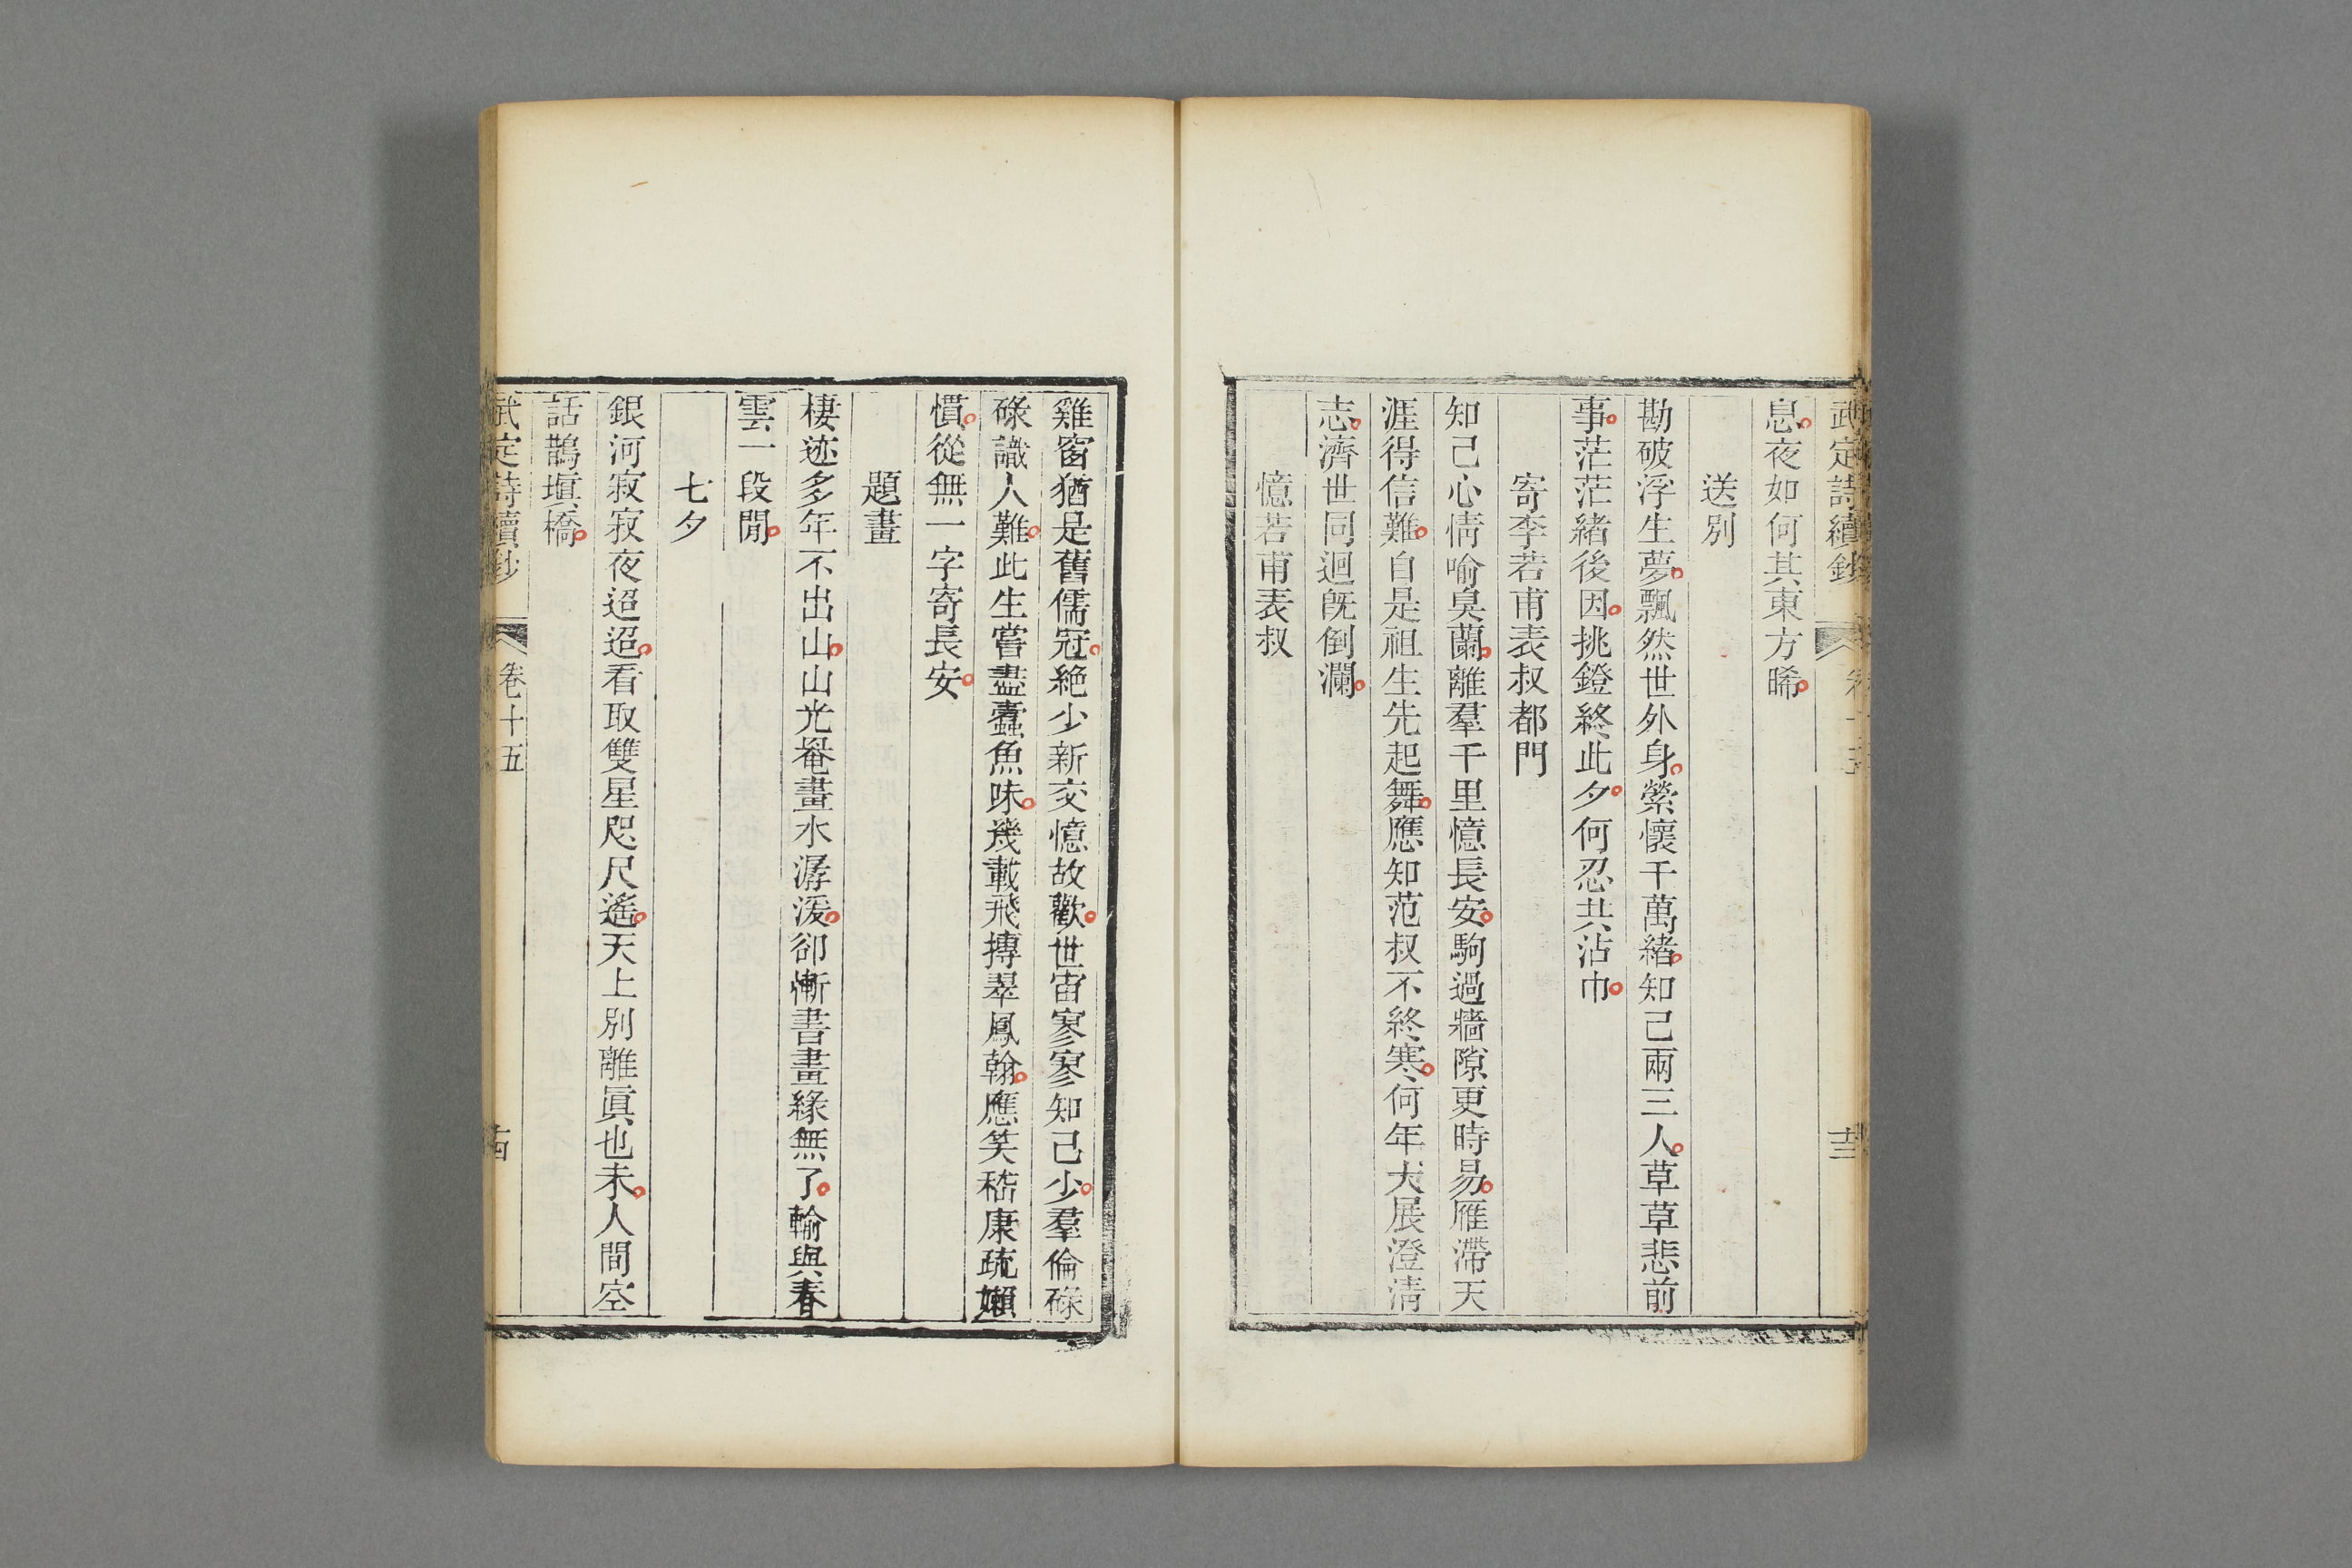 武定詩續鈔
十三
息夜如何其東方晞
送別
勘破浮生夢飄然世外身縈懷千萬緒知己兩三人草草悲前
事茫茫緒後因挑鐙終此夕何忍共沾巾
寄李若甫表叔都門
知己心情喻臭蘭離羣千里憶長安駒過牆隙更時易雁滯天
涯得信難自是祖生先起舞應知范叔不終寒何年大展澄清
志濟世同迴旣倒瀾
憶若甫表叔
雞窗猶是舊儒冠絶少新交憶故歡世宙寥寥知己少羣倫碌
碌識人難此生嘗盡蠹魚味幾載飛摶翠鳳翰應笑嵇康疏嬾
慣從無一字寄長安
題畫
棲迹多年不出山山光罨畫水潺湲卻慚書畫緣無了輸與春
雲一段閒
七夕
銀河寂寂夜迢迢看取雙星咫尺遙天上別離眞也未人間空
話鵲塡橋
武定詩續鈔
卷十五
十四